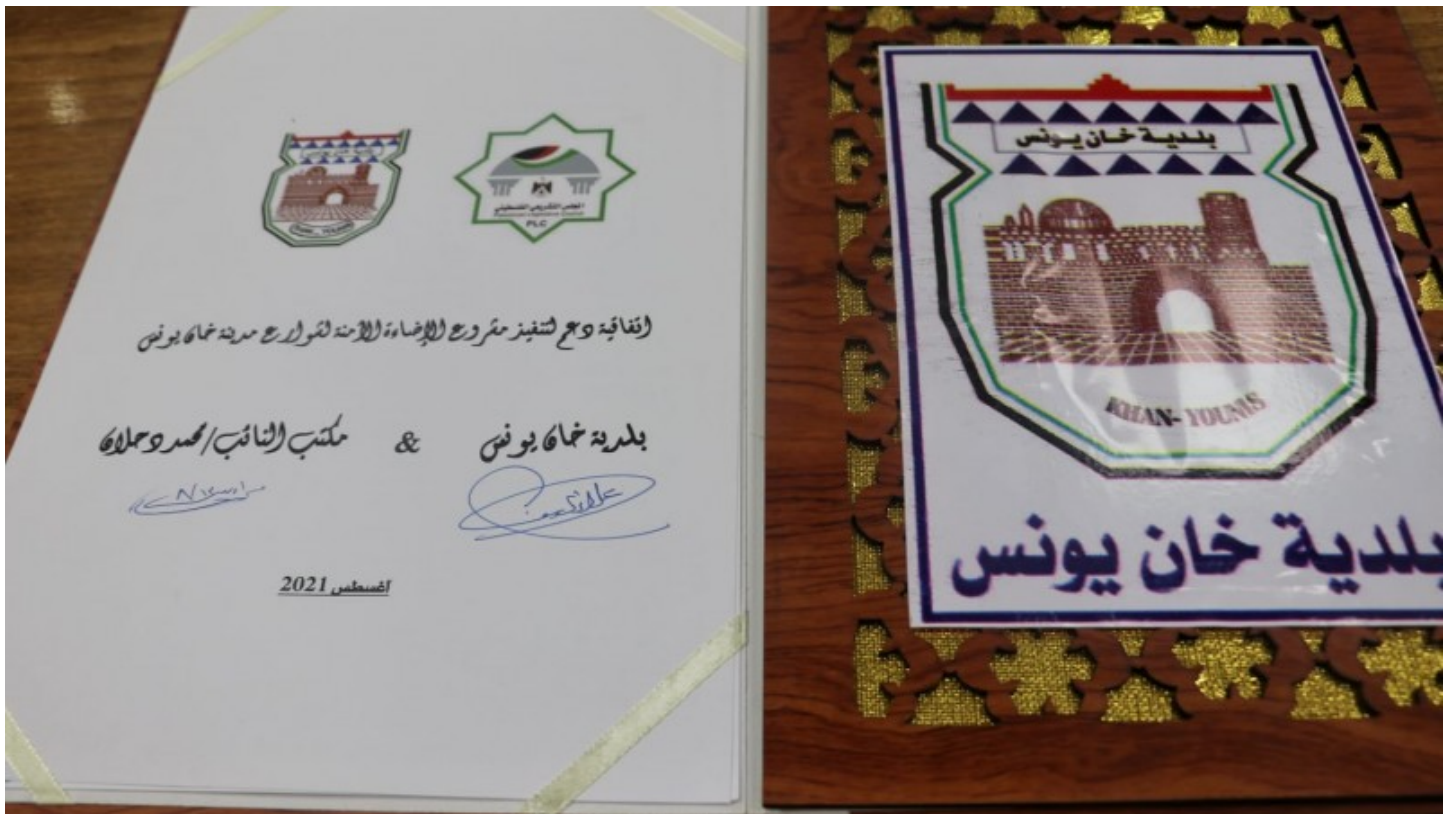 بلدية خان يونس
المجلس التشريعي الفلسطيني
PLC
اتفاقية دعم لتنفيذ مشروع الإضاءة الآمنة لشوارع مدينة خان يونس
بلدية خان يونس & مكتب النائب/محمد دحلان
أغسطس 2021
بلدية خان يونس
KHAN-YOUNIS
بلدية خان يونس